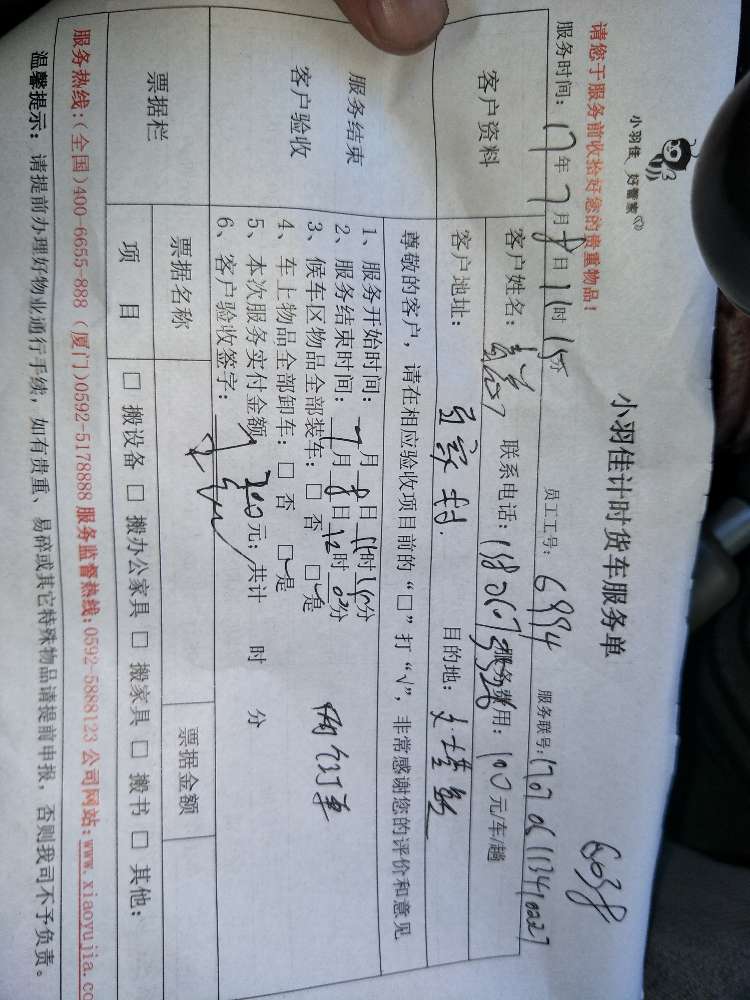 小羽佳 好管家
小羽佳计时货车服务单
6038
请您于服务前收拾好您的贵重物品！
服务时间：17年7月8日11时15分 员工工号：6994 服务联号：
客户资料
客户姓名： 联系电话： 服务费用：100元/车/趟
客户地址： 目的地：
服务结束
客户验收
尊敬的客户，请在相应验收项目前的“□”打“√”，非常感谢您的评价和意见
1、服务开始时间：7月8日11时 分
2、服务结束时间：7月8日12时02分
3、候车区物品全部装车：□ 否 □ 是
4、车上物品全部卸车：□ 否 □ 是
5、本次服务实付金额 元；共计 时 分
6、客户验收签字：
票据栏
票据名称
票据金额
项 目
□ 搬设备 □ 搬办公家具 □ 搬家具 □ 搬书 □ 其他：
服务热线：(全国)400-6655-888 (厦门)0592-5178888 服务监督热线：0592-5888123 公司网站：www.xiaoyujia.co
温馨提示：请提前办理好物业通行手续，如有贵重、易碎或其它特殊物品请提前申报，否则我司不予负责。